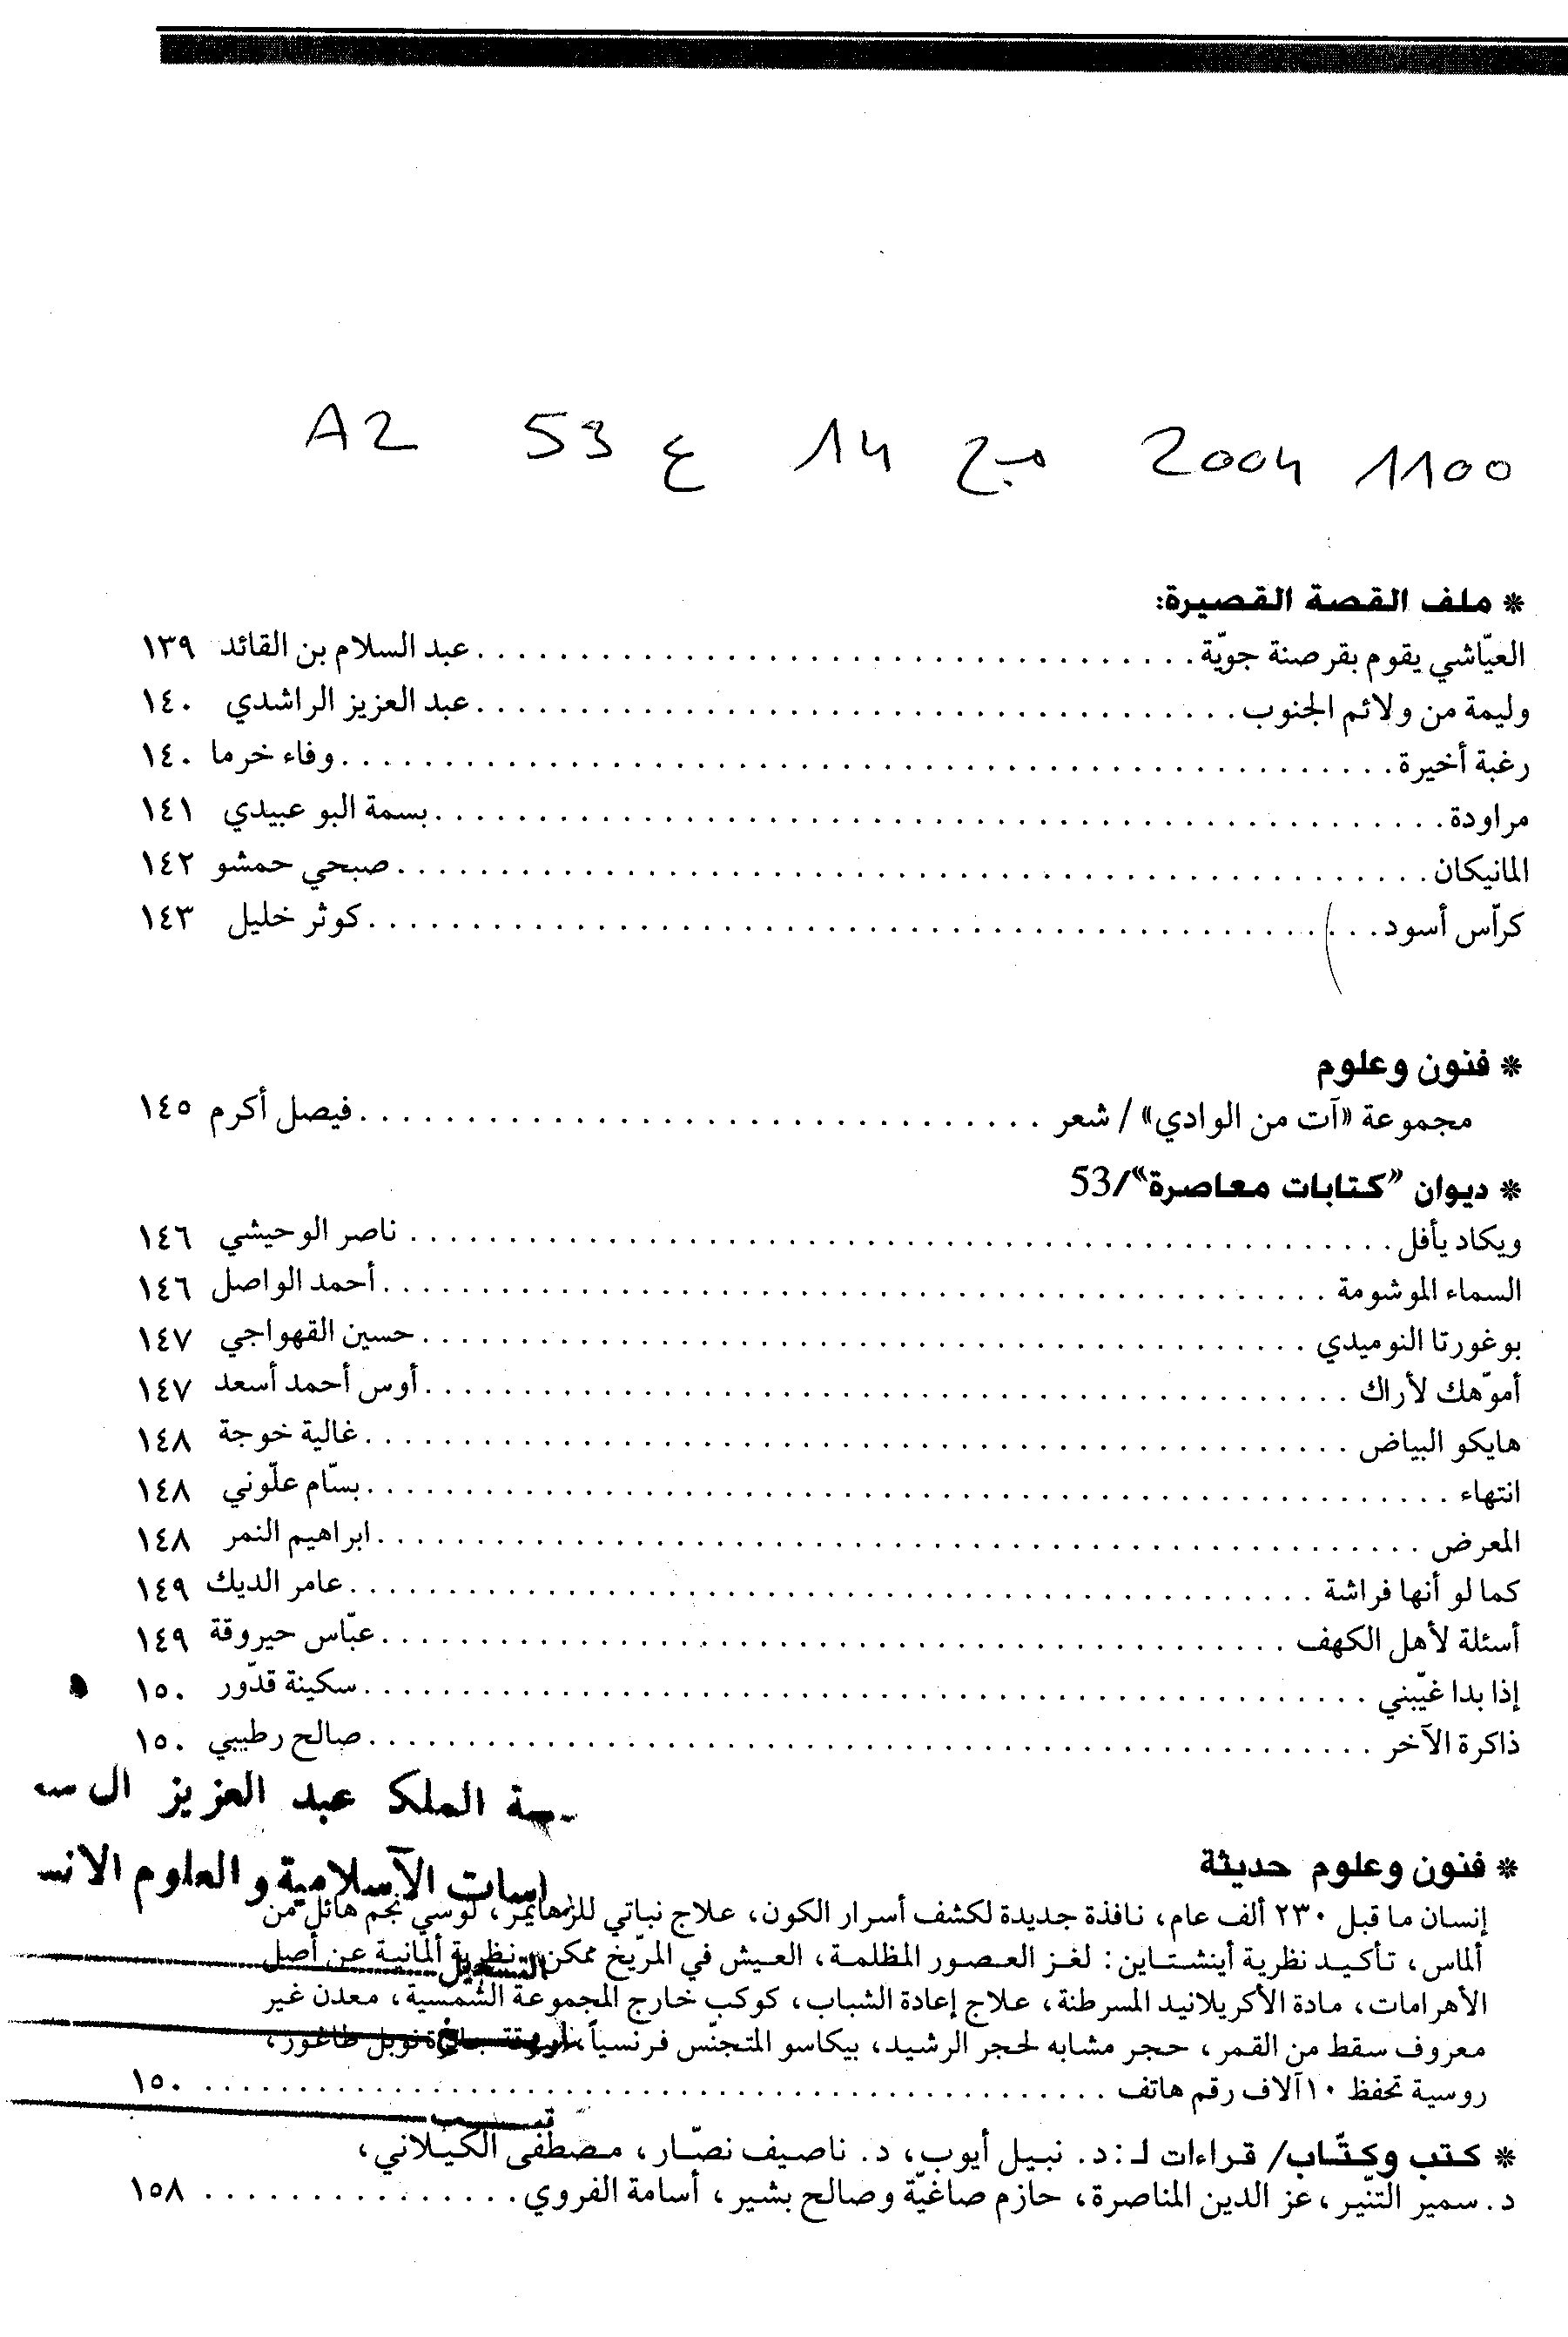 1100 2004 مج 14 ع 53 A2
* ملف القصة القصيرة:
العيّاشي يقوم بقرصنة جويّة ........ عبد السلام بن القائد ١٣٩
وليمة من ولائم الجنوب ........ عبد العزيز الراشدي ١٤٠
رغبة أخيرة ........ وفاء خرما ١٤٠
مراودة ........ بسمة البو عبيدي ١٤١
المانيكان ........ صبحي حمشو ١٤٢
كرّاس أسود ........ كوثر خليل ١٤٣
* فنون وعلوم
مجموعة «آت من الوادي» / شعر ........ فيصل أكرم ١٤٥
* ديوان "كتابات معاصرة"/53
ويكاد يأفل ........ ناصر الوحيشي ١٤٦
السماء الموشومة ........ أحمد الواصل ١٤٦
بوغورتا النوميدي ........ حسين القهواجي ١٤٧
أموّهك لأراك ........ أوس أحمد أسعد ١٤٧
هايكو البياض ........ غالية خوجة ١٤٨
انتهاء ........ بسّام علّوني ١٤٨
المعرض ........ ابراهيم النمر ١٤٨
كما لو أنها فراشة ........ عامر الديك ١٤٩
أسئلة لأهل الكهف ........ عبّاس حيروقة ١٤٩
إذا بدا غيّبني ........ سكينة قدّور ١٥٠
ذاكرة الآخر ........ صالح رطيبي ١٥٠
الملك عبد العزيز ال
الآسلامية والعلوم
* فنون وعلوم حديثة
إنسان ما قبل ٢٣٠ ألف عام، نافذة جديدة لكشف أسرار الكون، علاج نباتي للزهايمر، لوسي نجم هائل من
ألماس، تأكيد نظرية أينشتاين: لغز العصور المظلمة، العيش في المرّيخ ممكن، نظرية ألمانية عن أصل
التسجيل
الأهرامات، مادة الأكريلانيد المسرطنة، علاج إعادة الشباب، كوكب خارج المجموعة الشمسية، معدن غير
معروف سقط من القمر، حجر مشابه لحجر الرشيد، بيكاسو المتجنّس فرنسياً، نوبل طاغور،
روسية تحفظ ١٠ آلاف رقم هاتف ........ ١٥٠
* كتب وكتّاب/ قراءات لـ: د. نبيل أيوب، د. ناصيف نصّار، مصطفى الكيلاني،
د. سمير التنير، عز الدين المناصرة، حازم صاغيّة وصالح بشير، أسامة الفروي ........ ١٥٨